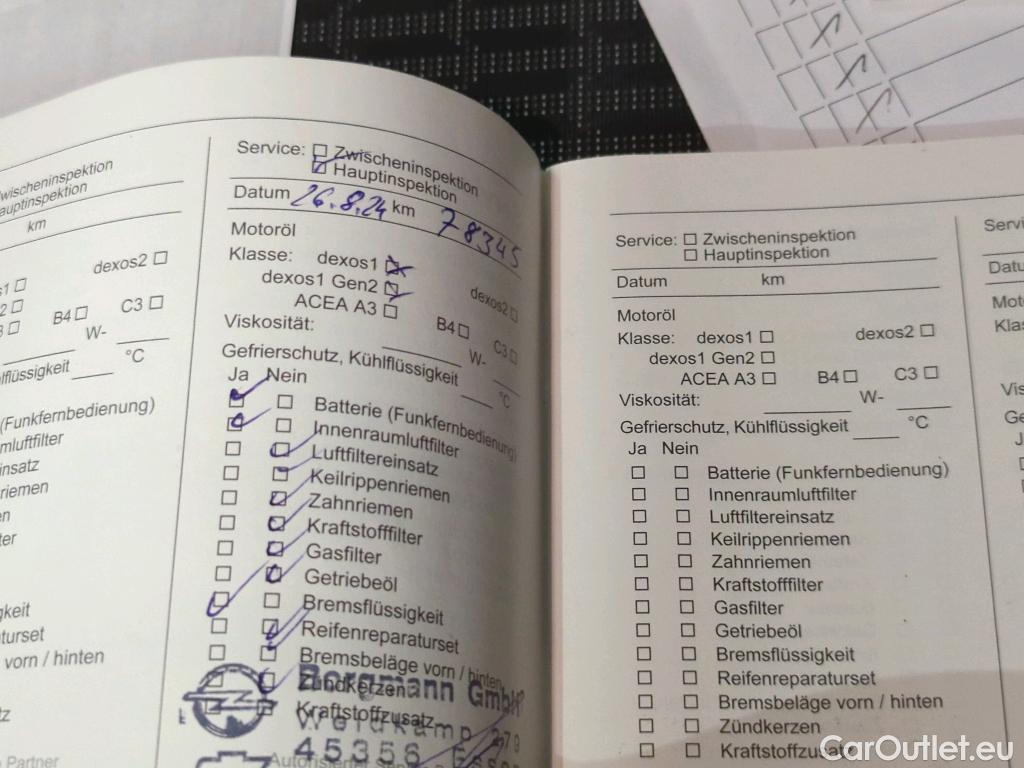 wischeninspektion
auptinspektion
km
dexos2
s1
2
3
B4
C3
W-
°C
lflüssigkeit
(Funkfernbedienung)
mluftfilter
insatz
riemen
en
ter
gkeit
turset
vorn / hinten
tz
Partner
Service: Zwischeninspektion
Hauptinspektion
Datum 26.8.24 km 78345
Motoröl
Klasse: dexos1 dexos2
dexos1 Gen2
ACEA A3 B4 C3
Viskosität: W-
Gefrierschutz, Kühlflüssigkeit °C
Ja Nein
Batterie (Funkfernbedienung)
Innenraumluftfilter
Luftfiltereinsatz
Keilrippenriemen
Zahnriemen
Kraftstofffilter
Gasfilter
Getriebeöl
Bremsflüssigkeit
Reifenreparaturset
Bremsbeläge vorn / hinten
Zündkerzen
Kraftstoffzusatz
Borgmann GmbH
Weidkamp 279
45356 Essen
Autorisierter
Service: Zwischeninspektion
Hauptinspektion
Datum km
Motoröl
Klasse: dexos1 dexos2
dexos1 Gen2
ACEA A3 B4 C3
Viskosität: W-
Gefrierschutz, Kühlflüssigkeit °C
Ja Nein
Batterie (Funkfernbedienung)
Innenraumluftfilter
Luftfiltereinsatz
Keilrippenriemen
Zahnriemen
Kraftstofffilter
Gasfilter
Getriebeöl
Bremsflüssigkeit
Reifenreparaturset
Bremsbeläge vorn / hinten
Zündkerzen
Kraftstoffzusatz
Servi
Datu
Moto
Klas
Visk
Ge
J
CarOutlet.eu